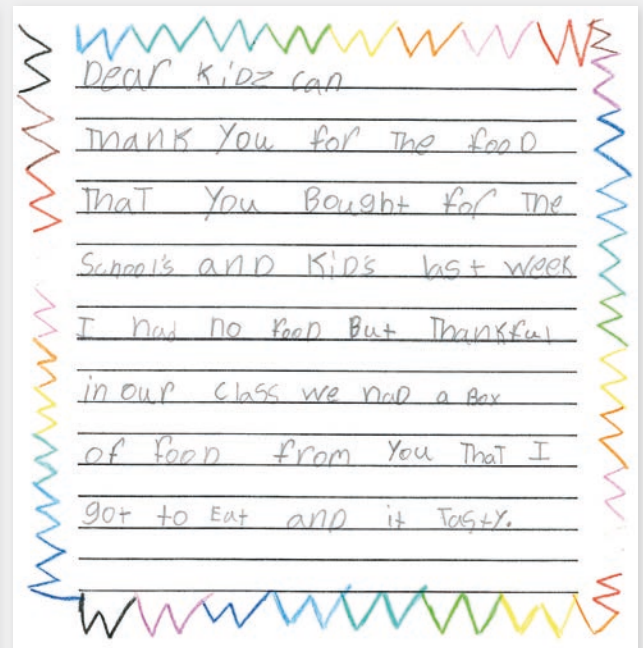 Dear KiDz can
Thank You for The fooD
ThaT You Bought for The
School's anD KiD's last week
I had no fooD But Thankful
in our class we haD a Box
of fooD from You ThaT I
got to Eat anD it TasTy.